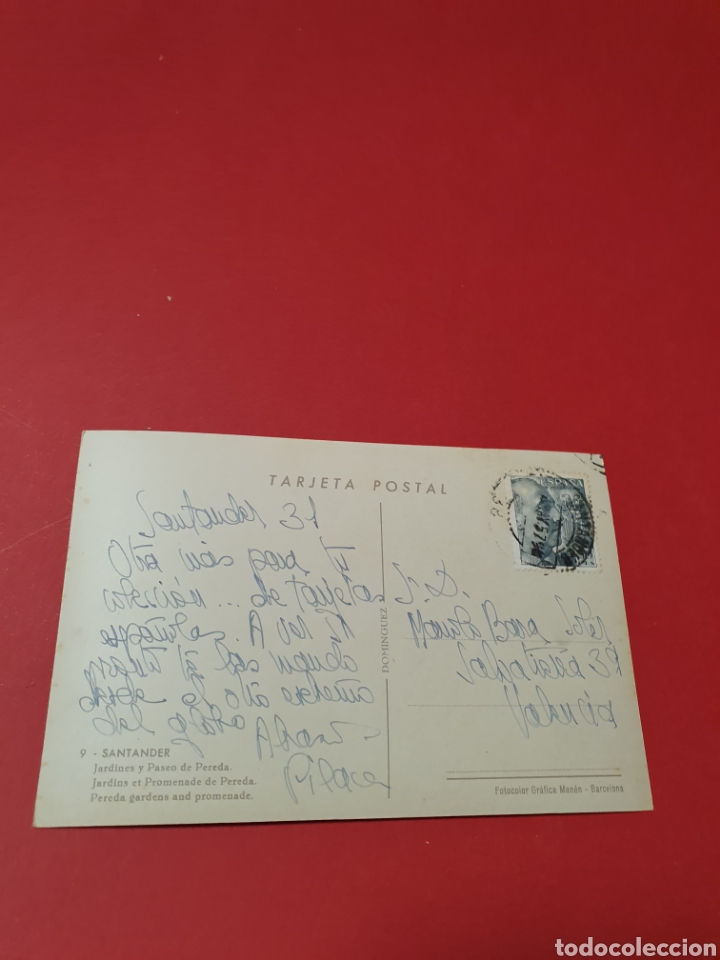 TARJETA POSTAL
Santander 31
Otra más para tu
colección... de tarjetas
españolas. A ver si
pronto tú las
desde el otro extremo
del globo
Pilar
S. D.
Valencia
DOMINGUEZ
9 - SANTANDER
Jardines y Paseo de Pereda.
Jardins et Promenade de Pereda.
Pereda gardens and promenade.
Fotocolor Gráfica Manén - Barcelona
todocoleccion